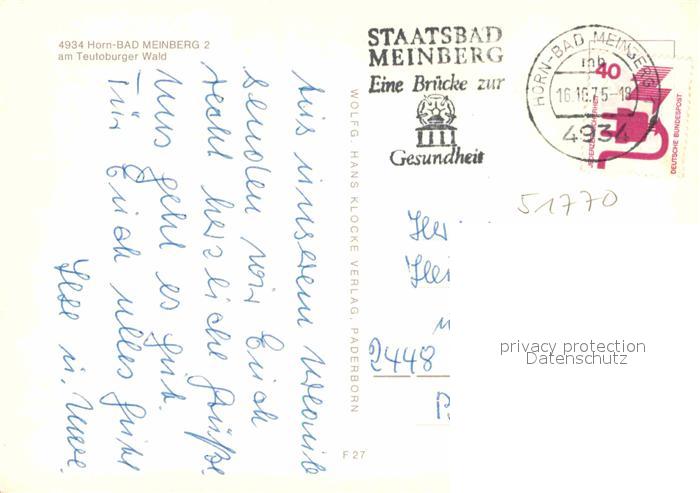 4934 Horn-BAD MEINBERG 2
am Teutoburger Wald
STAATSBAD
MEINBERG
Eine Brücke zur
Gesundheit
HORN-BAD MEINBERG 1
mb
16.10.75-18
4934
40
JEDERZEIT SICHERHEIT
DEUTSCHE BUNDESPOST
51770
Aus unserem Urlaub
senden wir Euch
recht herzliche Grüße
Uns geht es gut.
Für Euch alles Gute
Ilse u. Uwe.
WOLFG. HANS KLOCKE VERLAG, PADERBORN
F 27
2448
privacy protection
Datenschutz